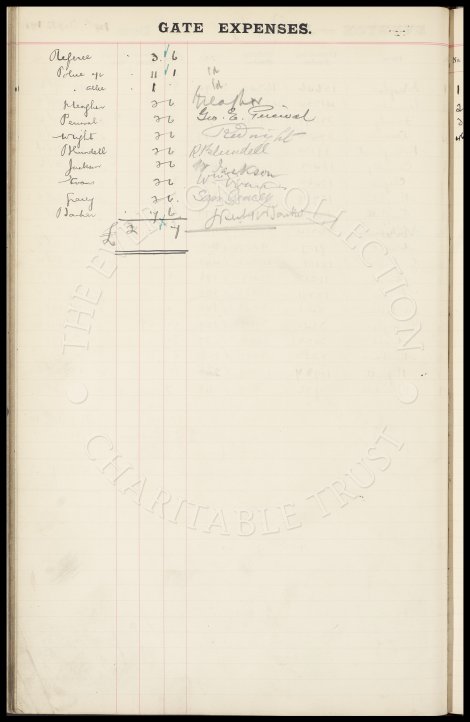 GATE EXPENSES.
No.
Referee 3 6
Police 11 1
1
Meagher 2 6 Meagher
Percival 2 6 Geo. E. Percival
Wright 2 6 Wright
Blundell 2 6 Blundell
Jackson 2 6 Jackson
Evans 2 6 Evans
Gracey 2 6 Gracey
Barker 4 6 Barker
£ 2 4
1
2
THE EVERTON COLLECTION
CHARITABLE TRUST